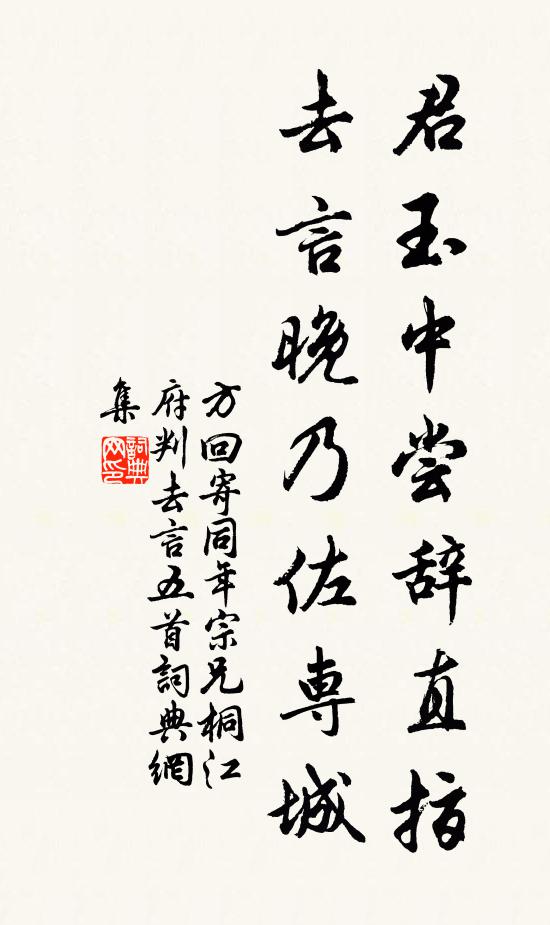 君玉中尝辞直指
去言晚乃佐専城
方回寄同年宗兄桐江
府判去言五首詞典網
集
詞典
网印